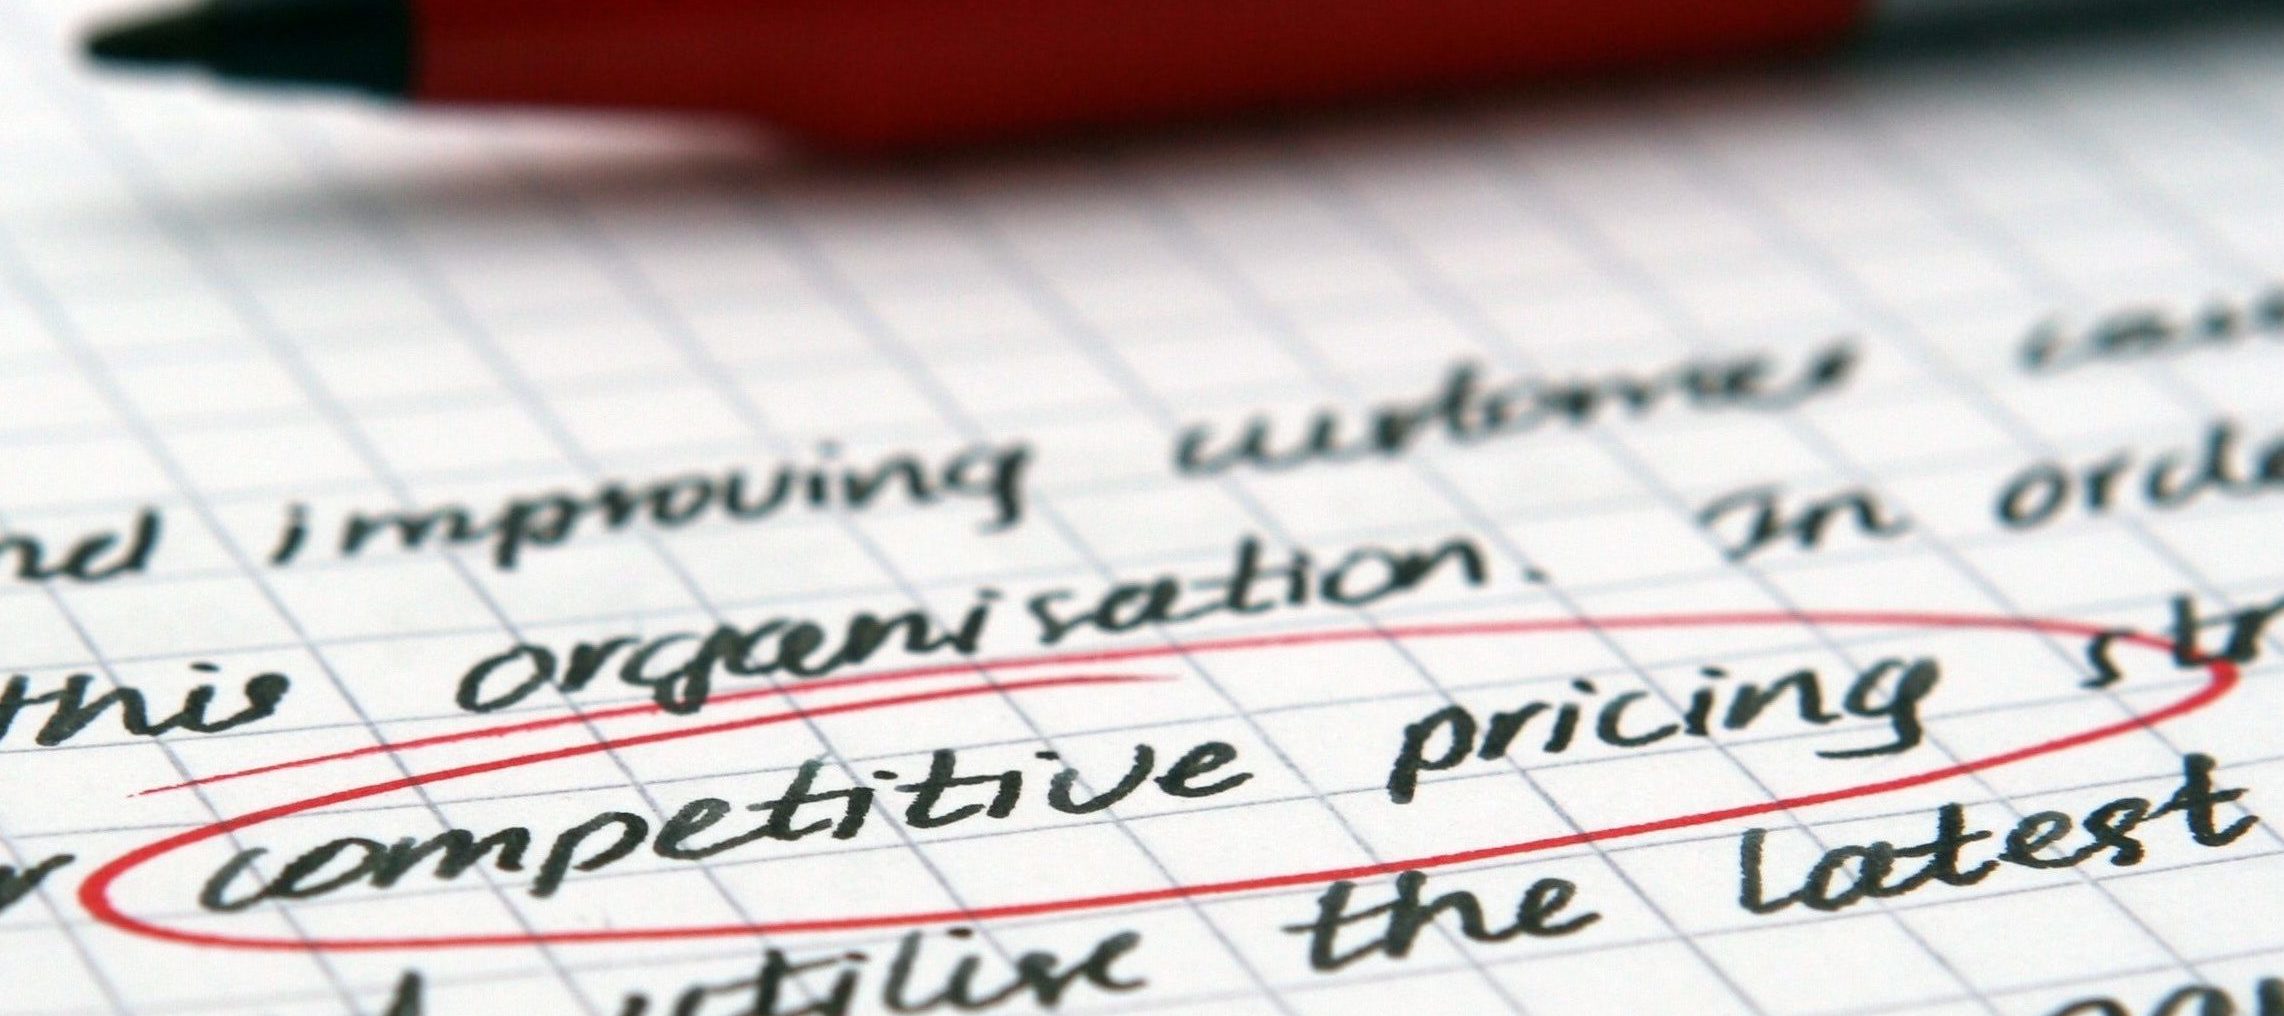 nd improving customer
this organisation. In orde
competitive pricing str
utilise the latest